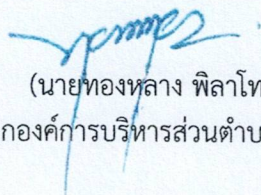 (นายทองหลาง พิลาโท
กองค์การบริหารส่วนตำบ